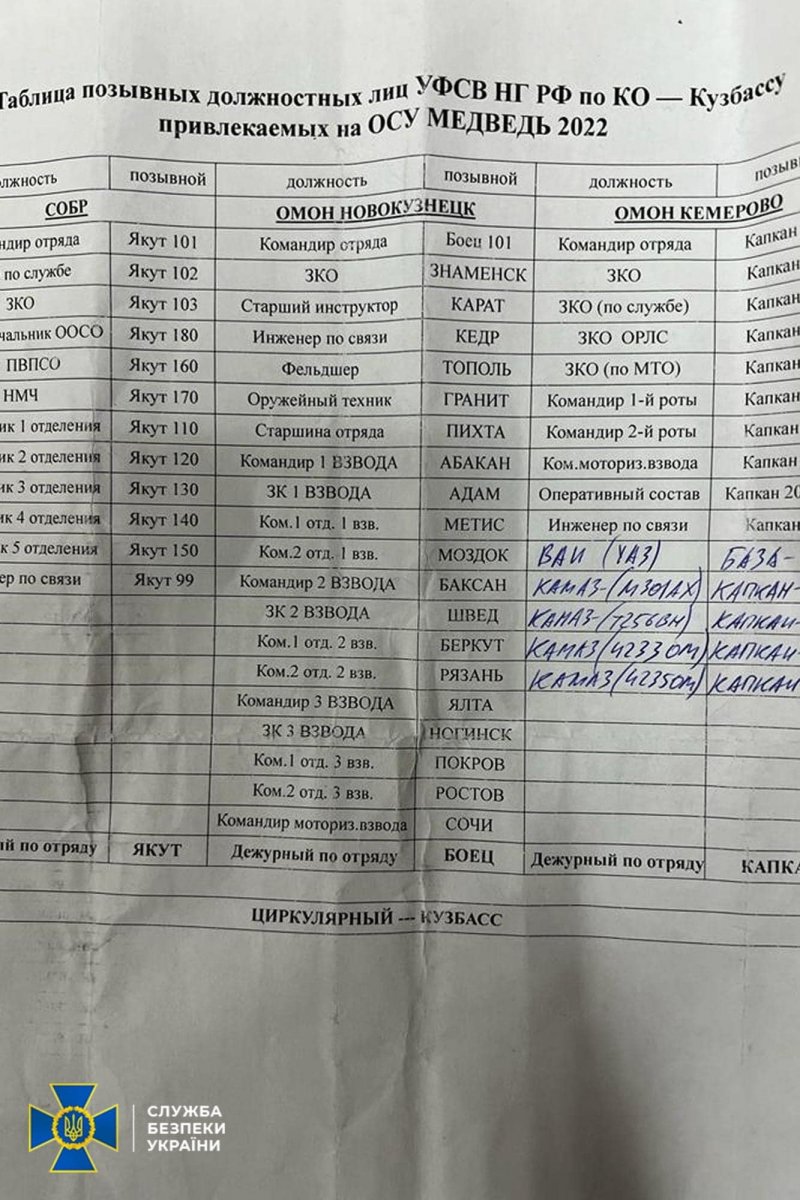 Таблица позывных должностных лиц УФСВ НГ РФ по КО — Кузбассу
привлекаемых на ОСУ МЕДВЕДЬ 2022
позывной должность позывной должность
СОБР ОМОН НОВОКУЗНЕЦК ОМОН КЕМЕРОВО
Якут 101 Командир отряда Боец 101 Командир отряда Капкан
по службе Якут 102 ЗКО ЗНАМЕНСК ЗКО Капкан
ЗКО Якут 103 Старший инструктор КАРАТ ЗКО (по службе) Капкан
ООСО Якут 180 Инженер по связи КЕДР ЗКО ОРЛС Капкан
ПВПСО Якут 160 Фельдшер ТОПОЛЬ ЗКО (по МТО) Капкан
НМЧ Якут 170 Оружейный техник ГРАНИТ Командир 1-й роты Капкан
1 отделения Якут 110 Старшина отряда ПИХТА Командир 2-й роты Капкан
2 отделения Якут 120 Командир 1 ВЗВОДА АБАКАН Ком.моториз.взвода Капкан
3 отделения Якут 130 ЗК 1 ВЗВОДА АДАМ Оперативный состав Капкан 20
4 отделения Якут 140 Ком.1 отд. 1 взв. МЕТИС Инженер по связи Капкан
5 отделения Якут 150 Ком.2 отд. 1 взв. МОЗДОК ВАИ (УАЗ) БАЗА-
по связи Якут 99 Командир 2 ВЗВОДА БАКСАН КАМАЗ-(М301АХ) КАПКАН-
ЗК 2 ВЗВОДА ШВЕД КАМАЗ-(Т256ВН) КАПКАН-
Ком.1 отд. 2 взв. БЕРКУТ КАМАЗ(4233ОМ) КАПКАН-
Ком.2 отд. 2 взв. РЯЗАНЬ КАМАЗ(4235ОМ) КАПКАН
Командир 3 ВЗВОДА ЯЛТА
ЗК 3 ВЗВОДА НОГИНСК
Ком.1 отд. 3 взв. ПОКРОВ
Ком.2 отд. 3 взв. РОСТОВ
Командир моториз.взвода СОЧИ
по отряду ЯКУТ Дежурный по отряду БОЕЦ Дежурный по отряду КАПКА
ЦИРКУЛЯРНЫЙ --- КУЗБАСС
СЛУЖБА
БЕЗПЕКИ
УКРАЇНИ